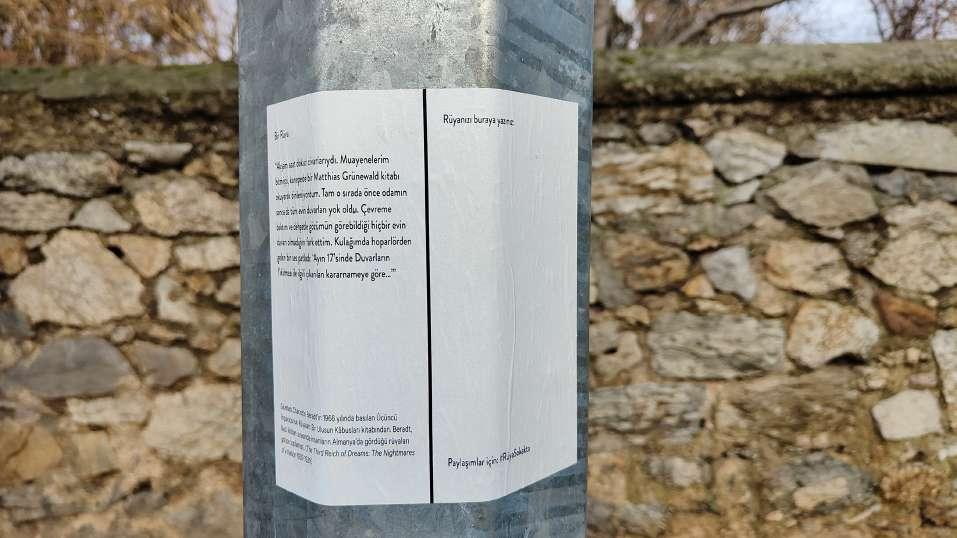 Bir Rüya
"Akşam saat dokuz civarlarıydı. Muayenelerim
bitmişti, kanepede bir Matthias Grünewald kitabı
okuyarak dinleniyordum. Tam o sırada önce odamın
sonra da tüm evin duvarları yok oldu. Çevreme
baktım ve dehşetle gözümün görebildiği hiçbir evin
duvarı olmadığını fark ettim. Kulağımda hoparlörden
gelen bir ses patladı: 'Ayın 17'sinde Duvarların
Yıkılması ile ilgili çıkarılan kararnameye göre...'"
Charlotte Beradt'ın 1966 yılında basılan Üçüncü
Bir Ulusun Kâbusları kitabından. Beradt,
arasında insanların Almanya'da gördüğü rüyaları
(The Third Reich of Dreams: The Nightmares
of a Nation 1933-1939)
Rüyanızı buraya yazınız:
Paylaşımlar için: #RüyaSokakta